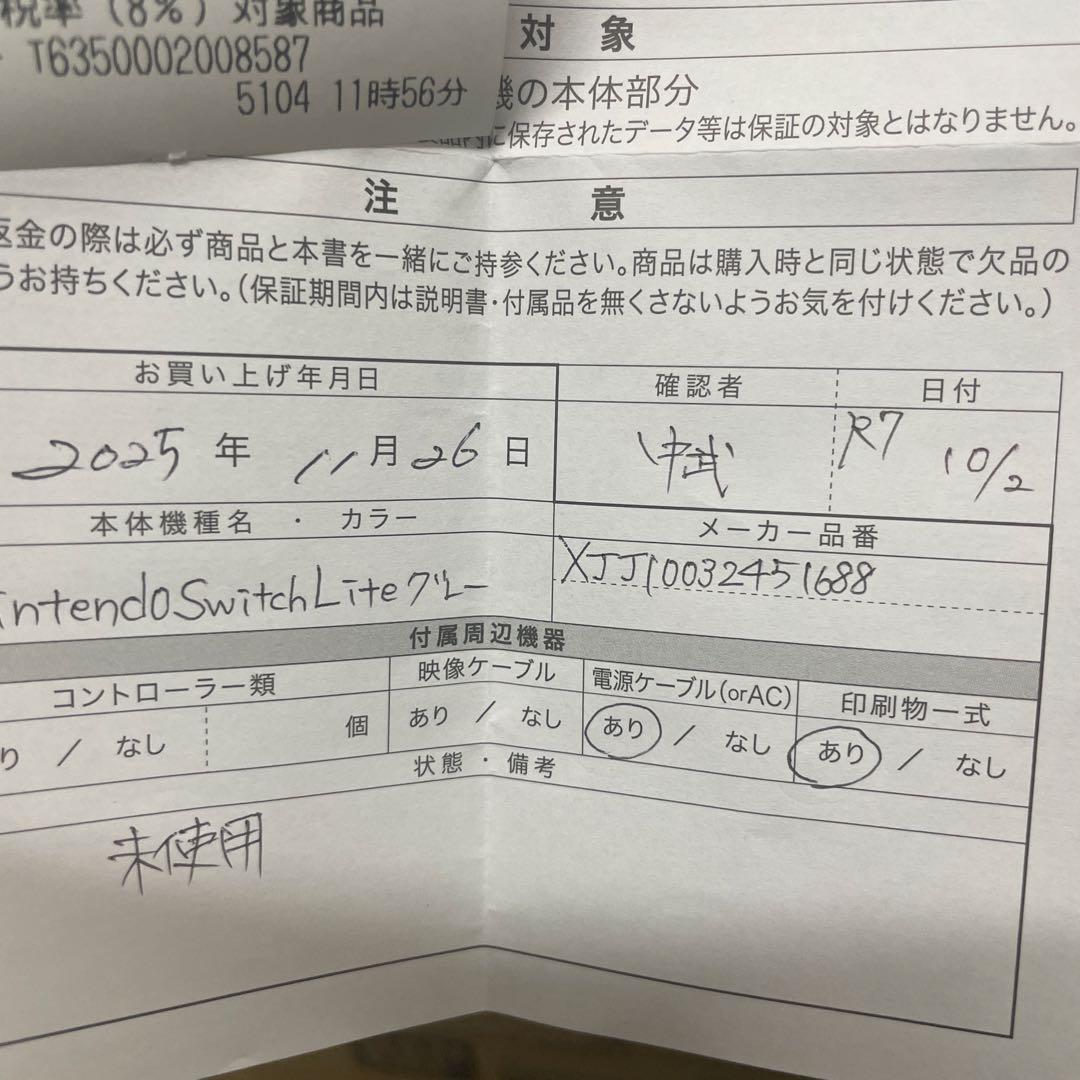 税率（8％）対象商品
T6350002008587
5104 11時56分
対象
機の本体部分
に保存されたデータ等は保証の対象とはなりません。
注意
返金の際は必ず商品と本書を一緒にご持参ください。商品は購入時と同じ状態で欠品の
うお持ちください。（保証期間内は説明書・付属品を無くさないようお気を付けください。）
お買い上げ年月日 確認者 日付
2025年 11月26日 中武 R7 10/2
本体機種名 ・ カラー メーカー品番
intendo Switch Lite グレー XJJ10032451688
付属周辺機器
コントローラー類 映像ケーブル 電源ケーブル（orAC） 印刷物一式
り / なし 個 あり / なし あり / なし あり / なし
状態・備考
未使用